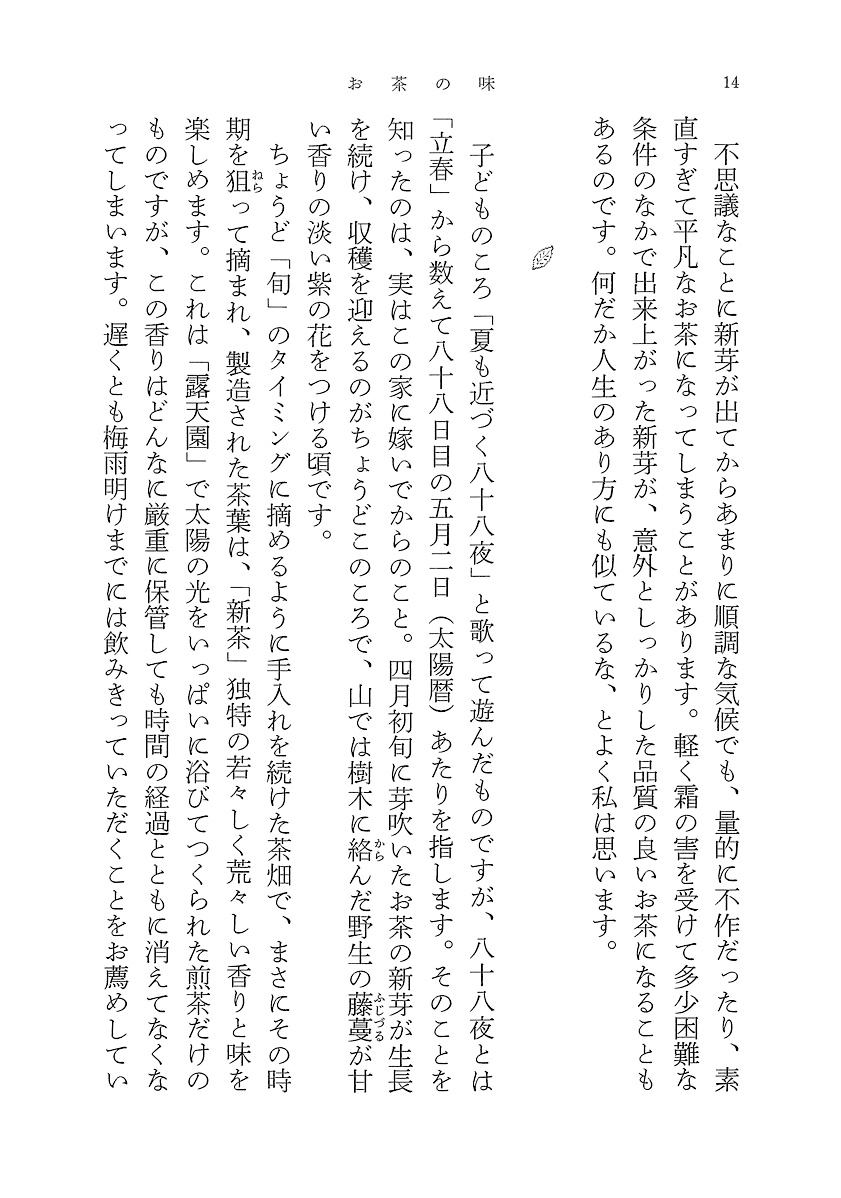 14
お茶の味
不思議なことに新芽が出てからあまりに順調な気候でも、量的に不作だったり、素
直すぎて平凡なお茶になってしまうことがあります。軽く霜の害を受けて多少困難な
条件のなかで出来上がった新芽が、意外としっかりした品質の良いお茶になることも
あるのです。何だか人生のあり方にも似ているな、とよく私は思います。
子どものころ「夏も近づく八十八夜」と歌って遊んだものですが、八十八夜とは
「立春」から数えて八十八日目の五月二日（太陽暦）あたりを指します。そのことを
知ったのは、実はこの家に嫁いでからのこと。四月初旬に芽吹いたお茶の新芽が生長
を続け、収穫を迎えるのがちょうどこのころで、山では樹木に絡からんだ野生の藤蔓ふじづるが甘
い香りの淡い紫の花をつける頃です。
ちょうど「旬」のタイミングに摘めるように手入れを続けた茶畑で、まさにその時
期を狙ねらって摘まれ、製造された茶葉は、「新茶」独特の若々しく荒々しい香りと味を
楽しめます。これは「露天園」で太陽の光をいっぱいに浴びてつくられた煎茶だけの
ものですが、この香りはどんなに厳重に保管しても時間の経過とともに消えてなくな
ってしまいます。遅くとも梅雨明けまでには飲みきっていただくことをお薦めしてい